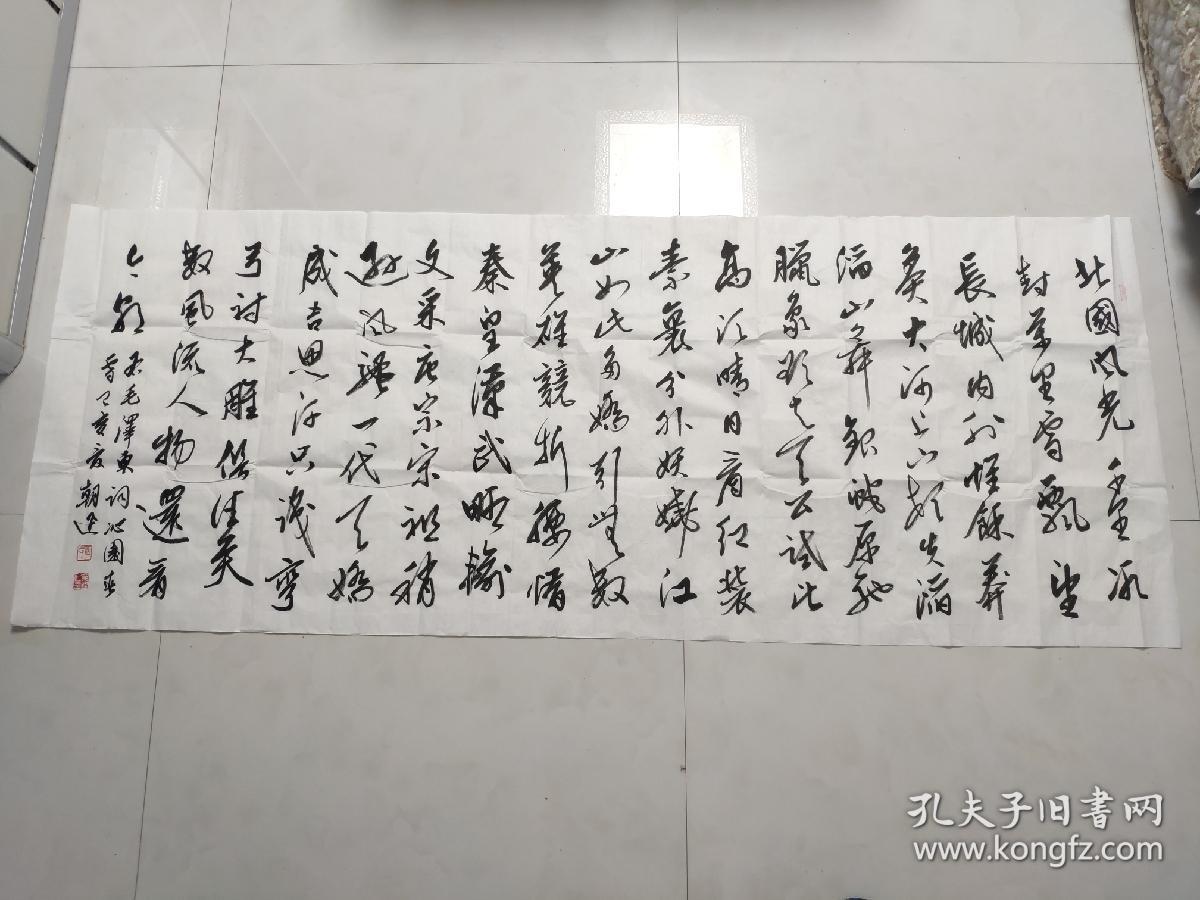 北國風光千里冰
封萬里雪飄望
長城内外惟餘莽
莽大河上下頓失滔
滔山舞銀蛇原馳
臘象欲与天公試比
高須晴日看红裝
素裹分外妖嬈江
山如此多嬌引無数
英雄競折腰惜
秦皇漢武略輸
文采唐宗宋祖稍
遜風騷一代天嬌
成吉思汗只識彎
弓射大雕俱往矣
数風流人物還看
今朝
毛澤東詞沁園春
雪己亥夏朝
孔夫子旧书网
www.kongfz.com